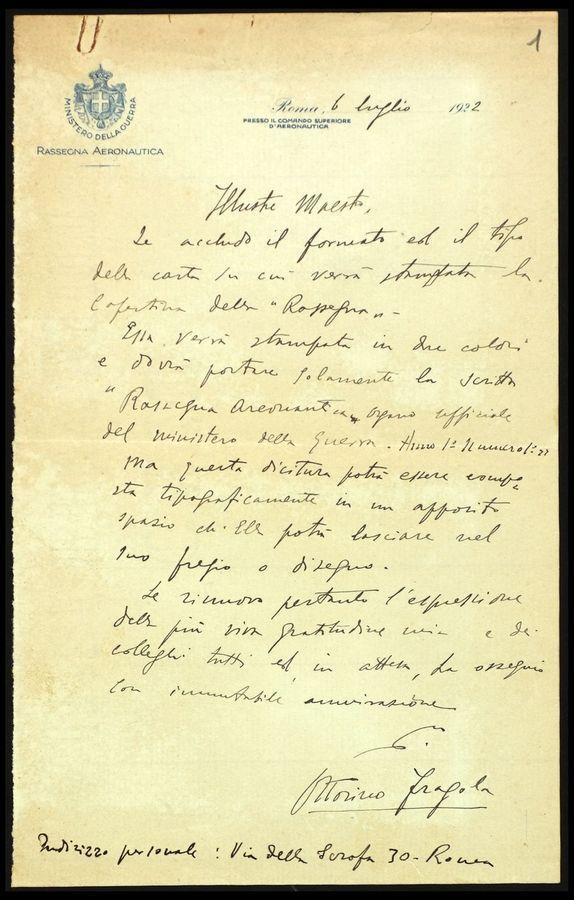 1
MINISTERO DELLA GUERRA
RASSEGNA AERONAUTICA
Roma, 6 luglio 1922
PRESSO IL COMANDO SUPERIORE
D'AERONAUTICA
Illustre Maestro,
Le accludo il formato ed il tipo
della carta su cui verrà stampata la
Copertina della "Rassegna" -
Essa verrà stampata in due colori
e dovrà portare solamente la scritta
"Rassegna Areonautica" organo ufficiale
del ministero della Guerra. Anno 1º Numero 1º"
Ma questa dicitura potrà essere compo
sta tipograficamente in un apposito
spazio che Ella potrà lasciare nel
suo fregio o disegno.
Le rinnovo pertanto l'espressione
della più viva gratitudine mia e dei
colleghi tutti ed, in attesa, La ossequio
con immutabile ammirazione
Ottorino Fragola
Indirizzo personale: Via della Scrofa 30 - Roma